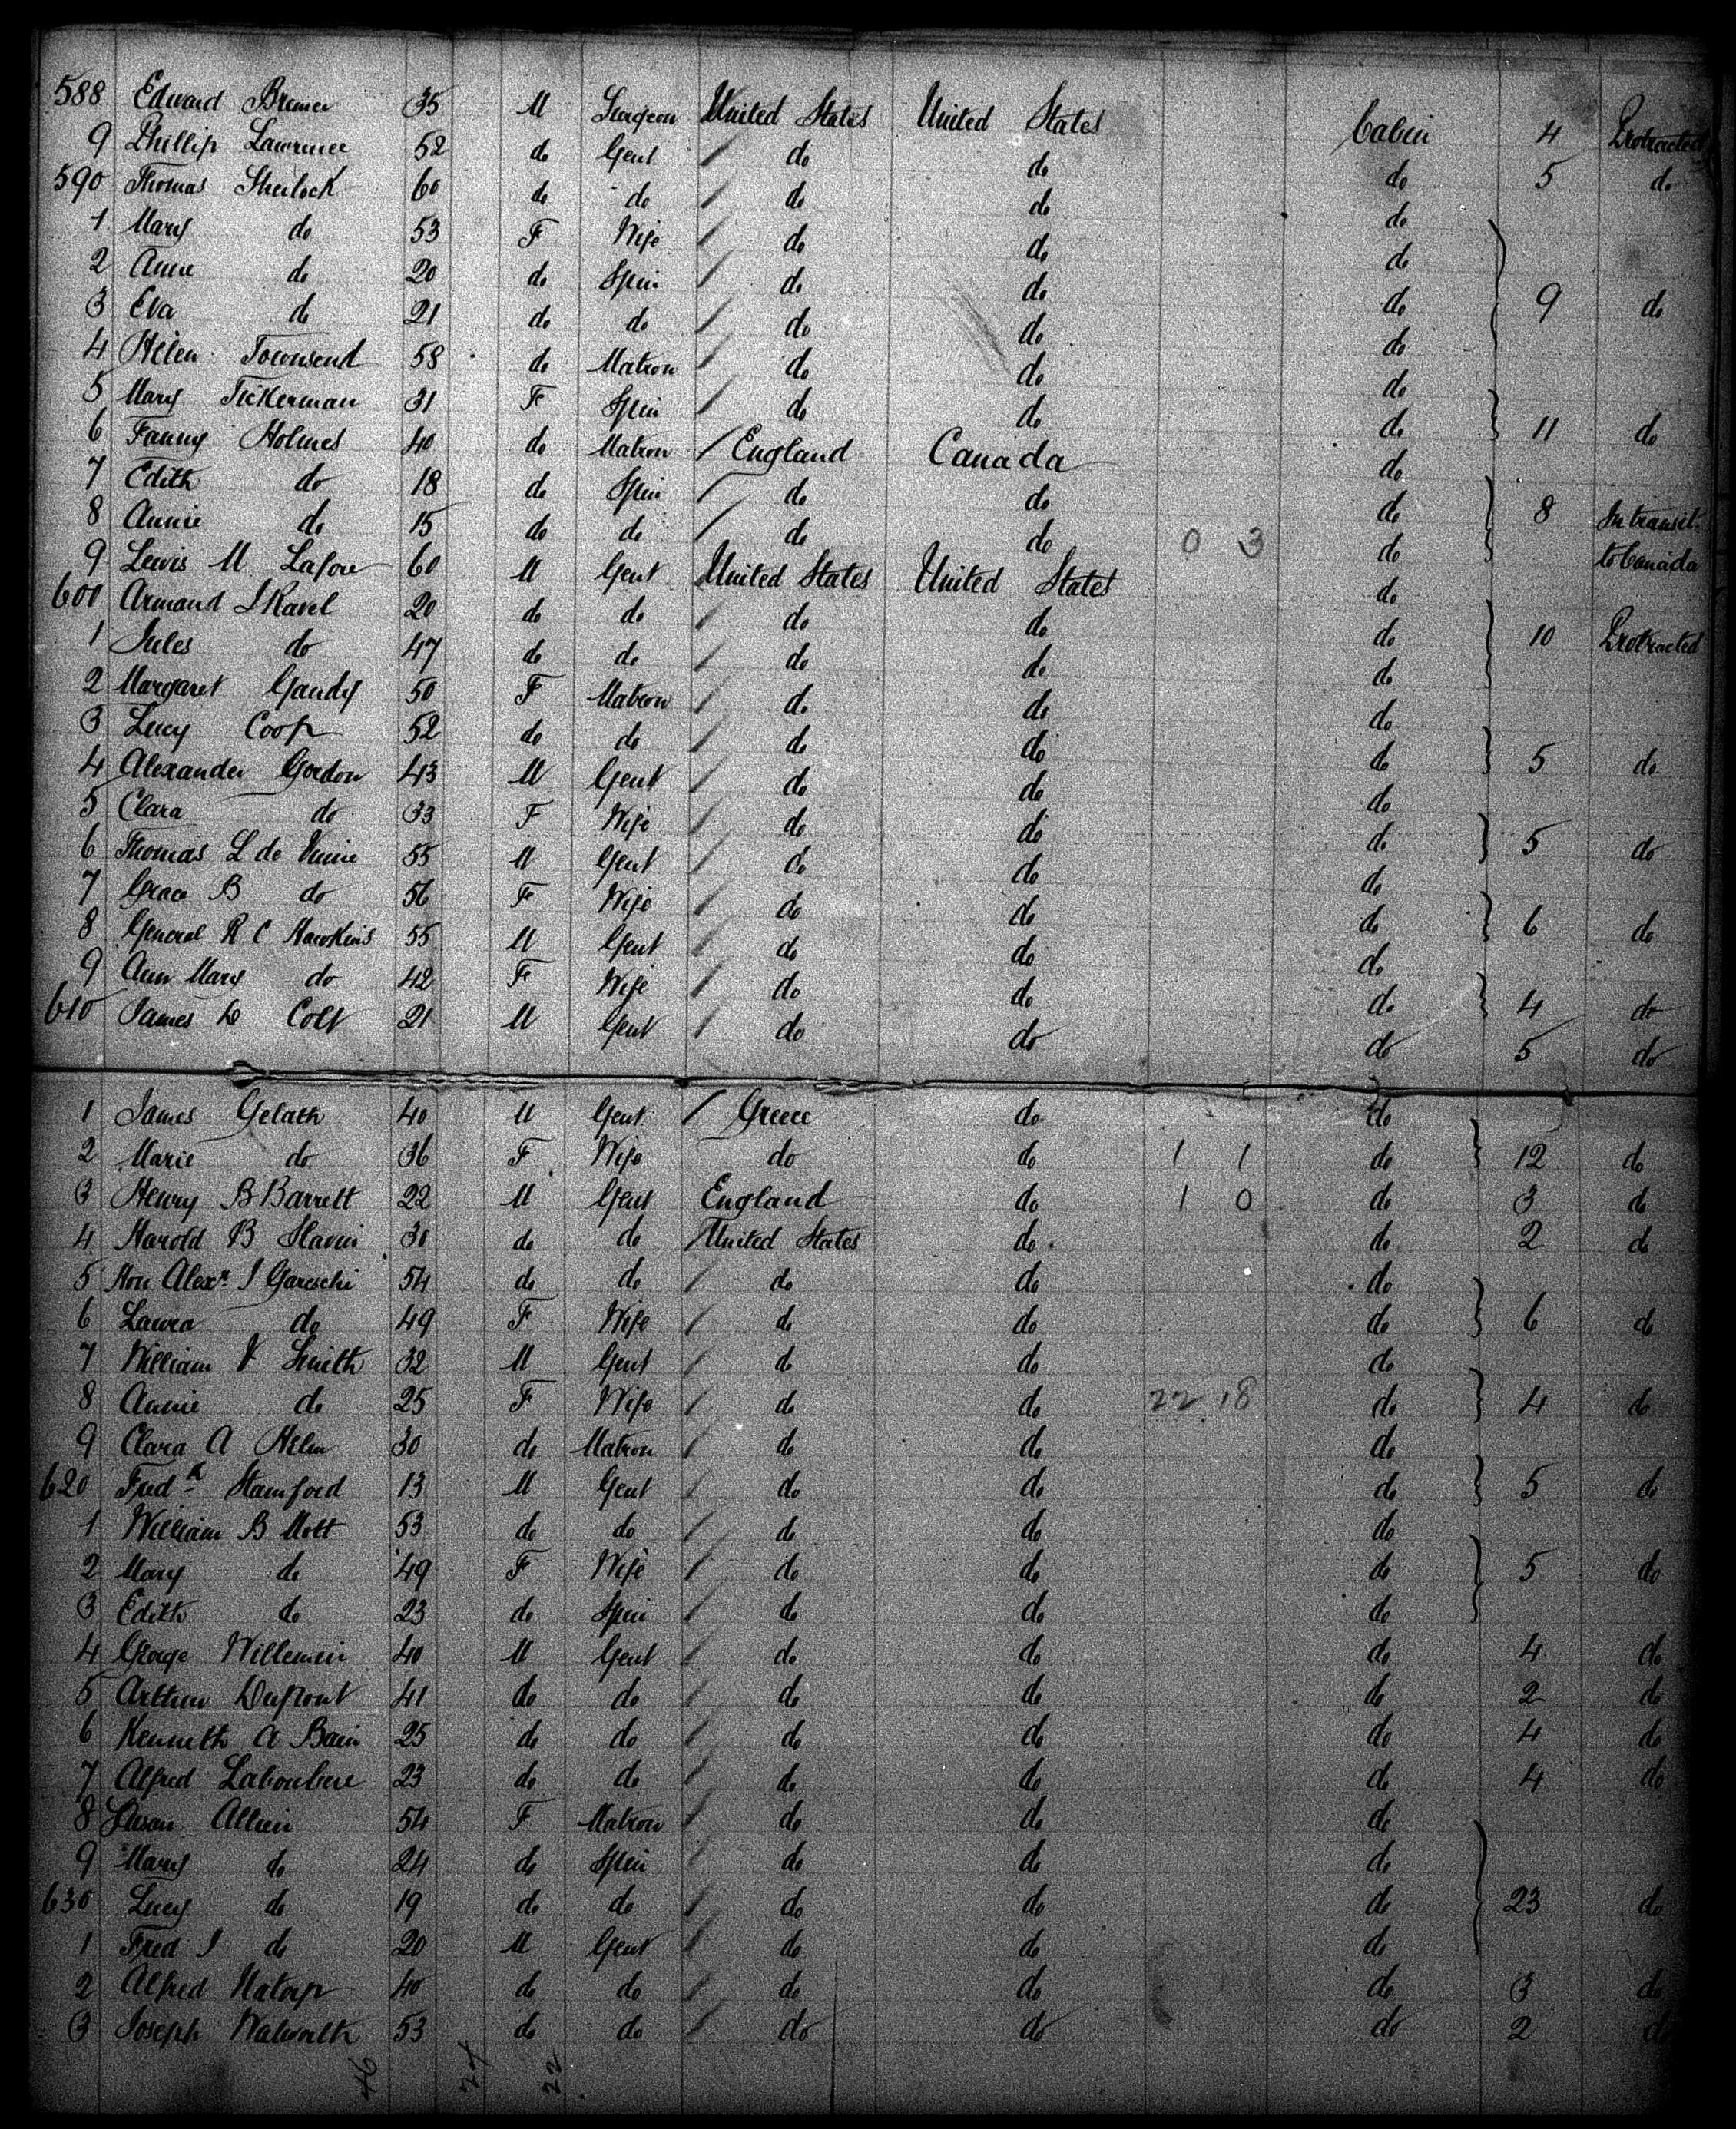 588 Edward Bremer 35 M Surgeon United States United States Cabin 4 Protracted
9 Phillip Lawrence 52 do Gent / do do do 5 do
590 Thomas Sherlock 60 do do / do do do
1 Mary do 53 F Wife / do do do
2 Anne do 20 do Spin / do do do 9 do
3 Eva do 21 do do / do do do
4 Helen Townsend 58 do Matron / do do do
5 Mary Tickerman 31 F Spin / do do do 11 do
6 Fanny Holmes 40 do Matron / England Canada do
7 Edith do 18 do Spin / do do do 8 In transit
8 Annie do 15 do do / do do 0 3 do to Canada
9 Lewis M Lafore 60 M Gent United States United States do
601 Armand L Ravel 20 do do / do do do 10 Protracted
1 Jules do 47 do do / do do do
2 Margaret Gandy 50 F Matron / do do do
3 Lucy Coop 52 do do / do do do 5 do
4 Alexander Gordon 43 M Gent / do do do
5 Clara do 33 F Wife / do do do 5 do
6 Thomas L de Vinne 55 M Gent / do do do
7 Grace B do 56 F Wife / do do do 6 do
8 General R C Hawkins 55 M Gent / do do do
9 Ann Mary do 42 F Wife / do do do 4 do
610 James D Colt 21 M Gent / do do do 5 do
1 James Gelath 40 M Gent / Greece do do
2 Marie do 36 F Wife do do 1 1 do 12 do
3 Henry B Barrett 22 M Gent England do 1 0 do 3 do
4 Harold B Slavin 30 do do / United States do do 2 do
5 Hon Alexr J Gareschi 54 do do / do do do
6 Laura do 49 F Wife / do do do 6 do
7 William V Smith 32 M Gent / do do do
8 Annie do 25 F Wife / do do 22 18 do 4 do
9 Clara A Helm 30 do Matron / do do do
620 Fredk Stamford 13 M Gent / do do do 5 do
1 William B Mott 53 do do / do do do
2 Mary do 49 F Wife / do do do 5 do
3 Edith do 23 do Spin / do do do
4 George Willemin 40 M Gent / do do do 4 do
5 Arthur DuPont 41 do do / do do do 2 do
6 Kenneth A Bain 25 do do / do do do 4 do
7 Alfred Laboubere 23 do do / do do do 4 do
8 Susan Allien 54 F Matron / do do do
9 Mary do 24 do Spin / do do do
630 Lucy do 19 do do / do do do 23 do
1 Fred J do 20 M Gent / do do do
2 Alfred Natorp 40 do do / do do do 3 do
3 Joseph Walworth 53 do do / do do do 2 do
46 24 22